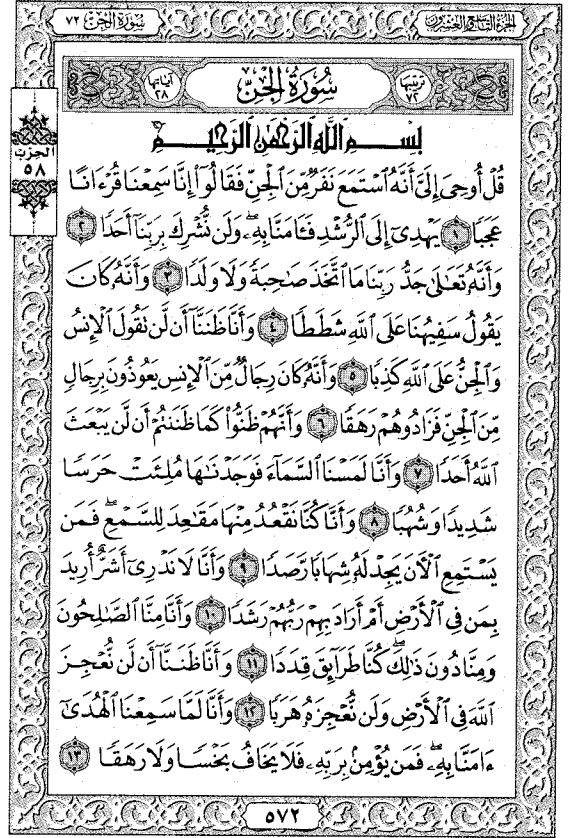 سُورَةُ الجِنّ ٧٢
الجزء التاسع والعشرون
ترتيبها ٧٢
سُورَةُ الجِنِّ
آياتها ٢٨
الحزب ٥٨
بِسْمِ ٱللَّهِ ٱلرَّحْمَٰنِ ٱلرَّحِيمِ
قُلْ أُوحِىَ إِلَىَّ أَنَّهُ ٱسْتَمَعَ نَفَرٌ مِّنَ ٱلْجِنِّ فَقَالُوٓا۟ إِنَّا سَمِعْنَا قُرْءَانًا
عَجَبًا ١ يَهْدِىٓ إِلَى ٱلرُّشْدِ فَـَٔامَنَّا بِهِۦ ۖ وَلَن نُّشْرِكَ بِرَبِّنَآ أَحَدًا ٢
وَأَنَّهُۥ تَعَٰلَىٰ جَدُّ رَبِّنَا مَا ٱتَّخَذَ صَٰحِبَةً وَلَا وَلَدًا ٣ وَأَنَّهُۥ كَانَ
يَقُولُ سَفِيهُنَا عَلَى ٱللَّهِ شَطَطًا ٤ وَأَنَّا ظَنَنَّآ أَن لَّن تَقُولَ ٱلْإِنسُ
وَٱلْجِنُّ عَلَى ٱللَّهِ كَذِبًا ٥ وَأَنَّهُۥ كَانَ رِجَالٌ مِّنَ ٱلْإِنسِ يَعُوذُونَ بِرِجَالٍ
مِّنَ ٱلْجِنِّ فَزَادُوهُمْ رَهَقًا ٦ وَأَنَّهُمْ ظَنُّوا۟ كَمَا ظَنَنتُمْ أَن لَّن يَبْعَثَ
ٱللَّهُ أَحَدًا ٧ وَأَنَّا لَمَسْنَا ٱلسَّمَآءَ فَوَجَدْنَٰهَا مُلِئَتْ حَرَسًا
شَدِيدًا وَشُهُبًا ٨ وَأَنَّا كُنَّا نَقْعُدُ مِنْهَا مَقَٰعِدَ لِلسَّمْعِ ۖ فَمَن
يَسْتَمِعِ ٱلْـَٔانَ يَجِدْ لَهُۥ شِهَابًا رَّصَدًا ٩ وَأَنَّا لَا نَدْرِىٓ أَشَرٌّ أُرِيدَ
بِمَن فِى ٱلْأَرْضِ أَمْ أَرَادَ بِهِمْ رَبُّهُمْ رَشَدًا ١٠ وَأَنَّا مِنَّا ٱلصَّٰلِحُونَ
وَمِنَّا دُونَ ذَٰلِكَ ۖ كُنَّا طَرَآئِقَ قِدَدًا ١١ وَأَنَّا ظَنَنَّآ أَن لَّن نُّعْجِزَ
ٱللَّهَ فِى ٱلْأَرْضِ وَلَن نُّعْجِزَهُۥ هَرَبًا ١٢ وَأَنَّا لَمَّا سَمِعْنَا ٱلْهُدَىٰٓ
ءَامَنَّا بِهِۦ ۖ فَمَن يُؤْمِنۢ بِرَبِّهِۦ فَلَا يَخَافُ بَخْسًا وَلَا رَهَقًا ١٣
٥٧٢